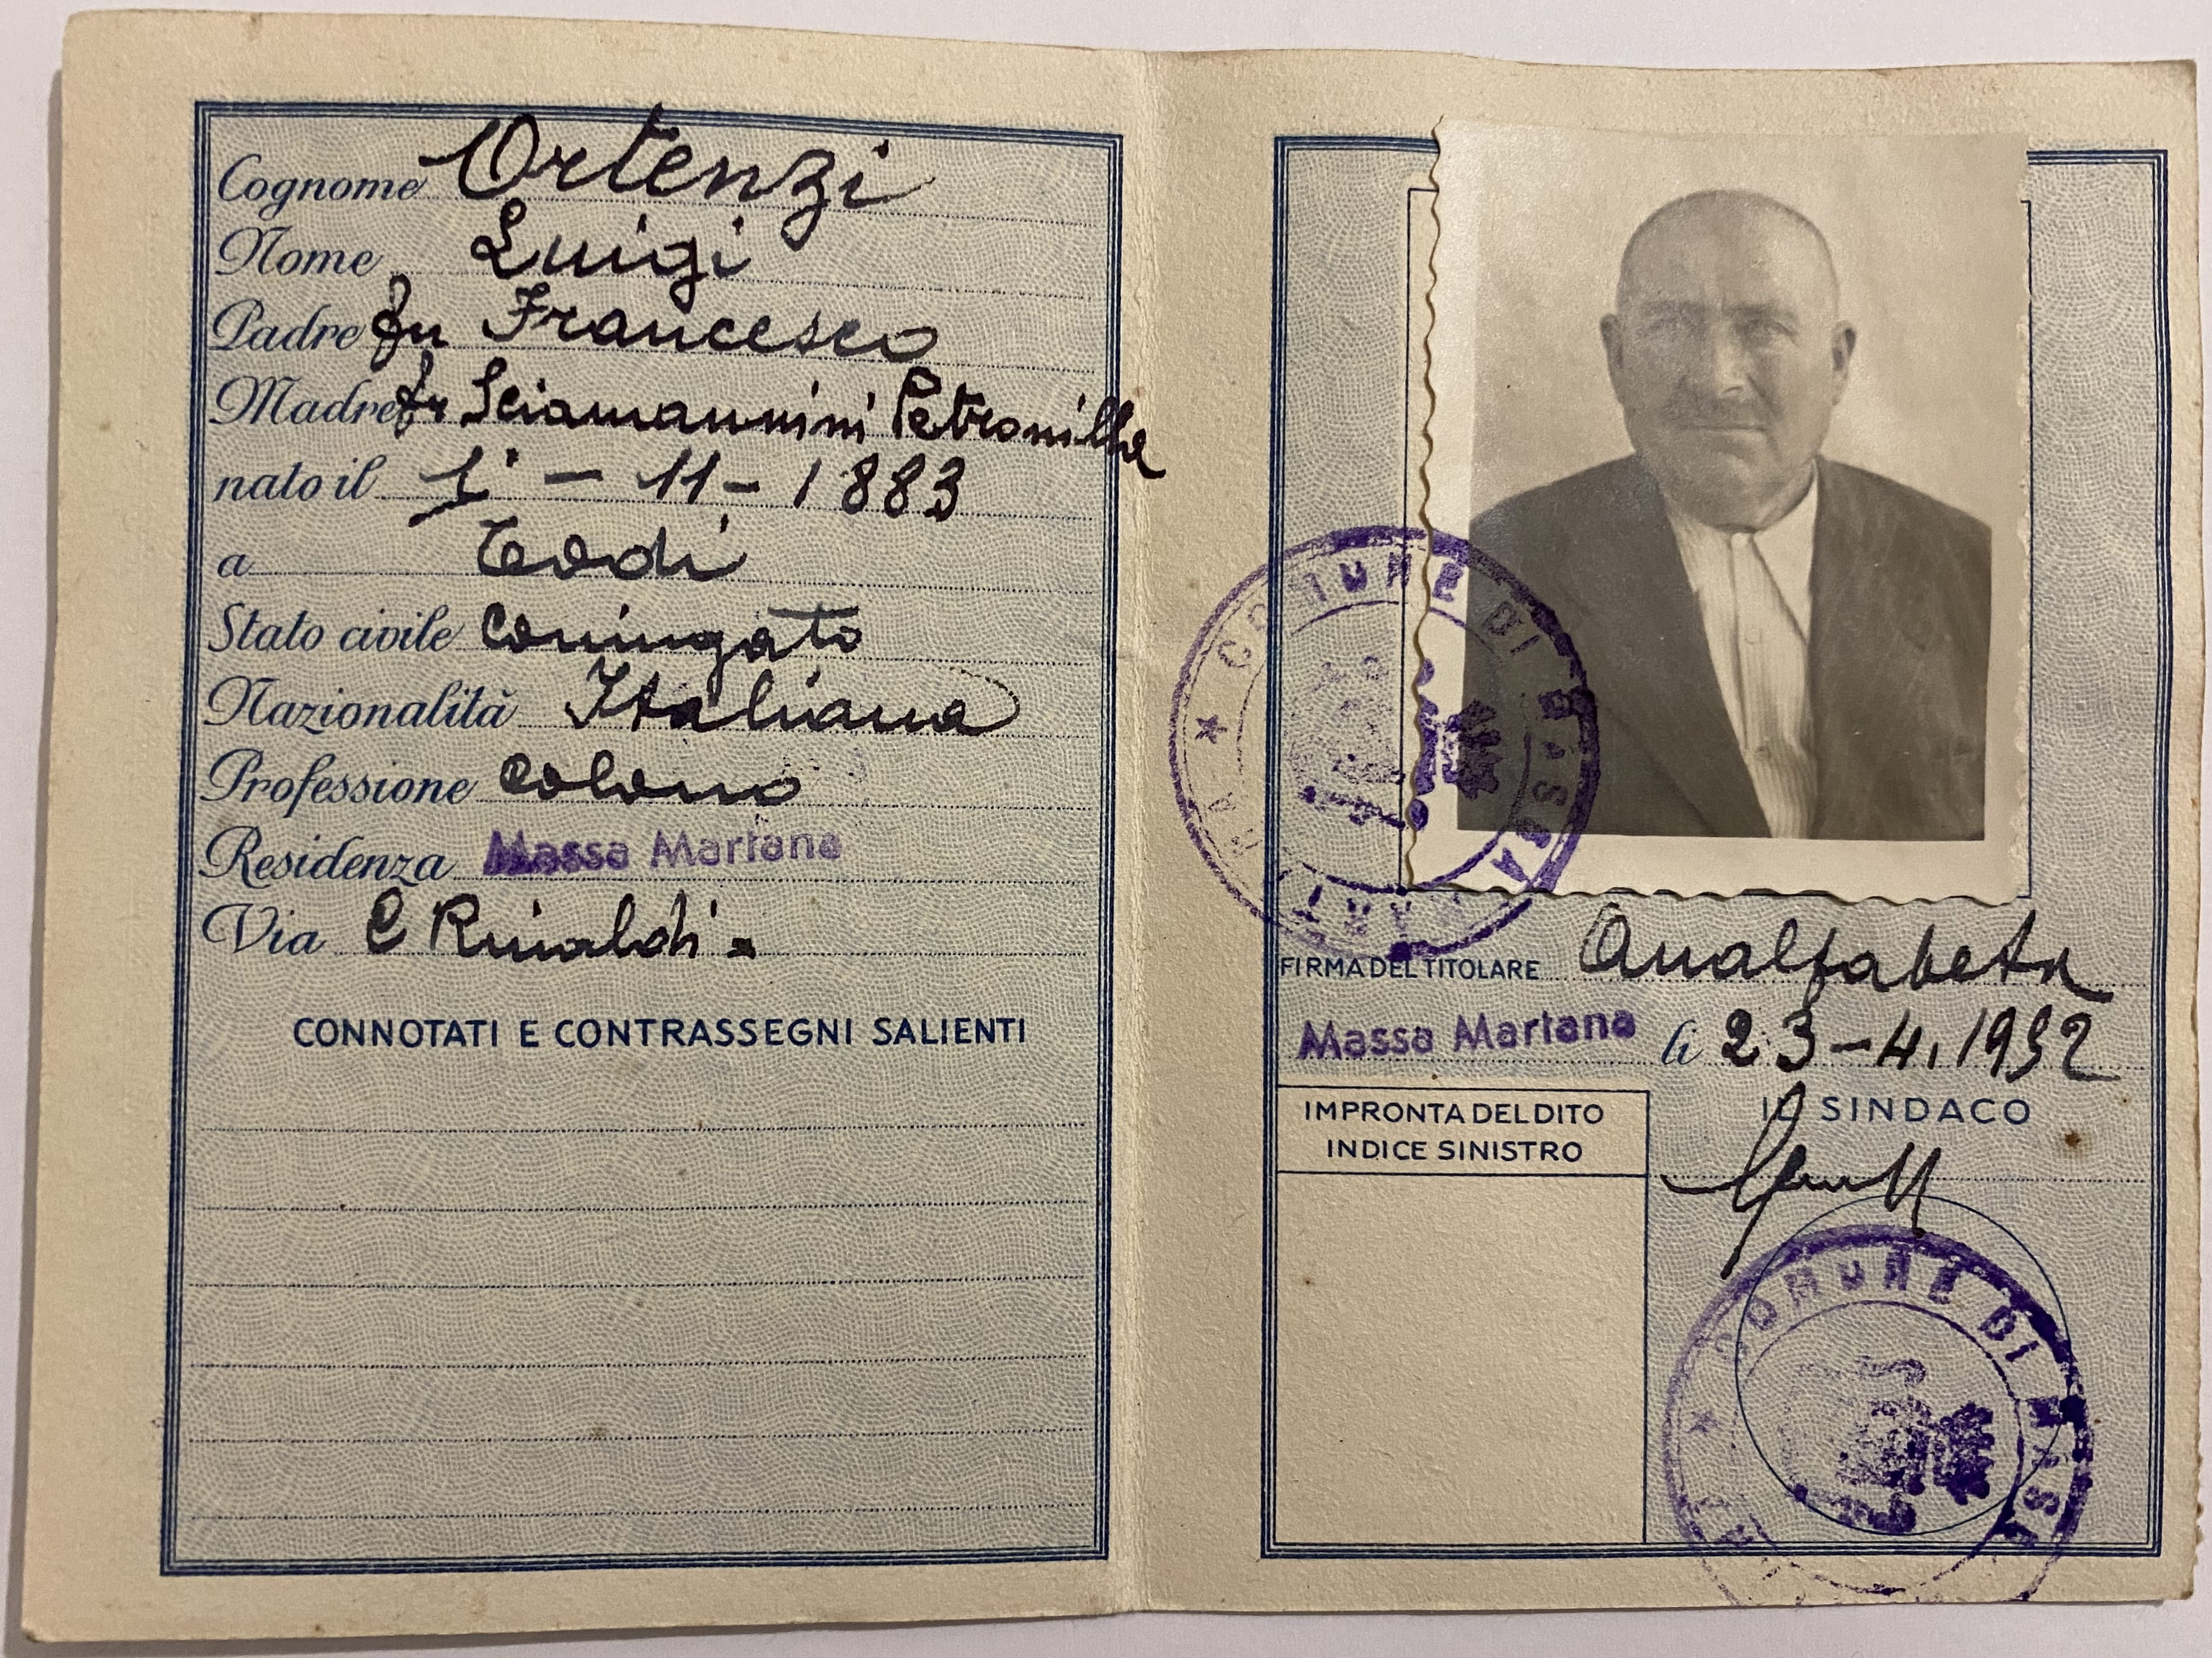 Cognome Ortenzi
Nome Luigi
Padre fu Francesco
Madre fu Sciamannini Petronilla
nato il 1° - 11 - 1883
a Todi
Stato civile Coniugato
Nazionalità Italiana
Professione colono
Residenza Massa Martana
Via C Rinaldi =
CONNOTATI E CONTRASSEGNI SALIENTI
COMUNE DI MASSA MARTANA
FIRMA DEL TITOLARE Analfabeta
Massa Martana li 23-4.1952
IMPRONTA DEL DITO
INDICE SINISTRO
IL SINDACO
COMUNE DI MASSA